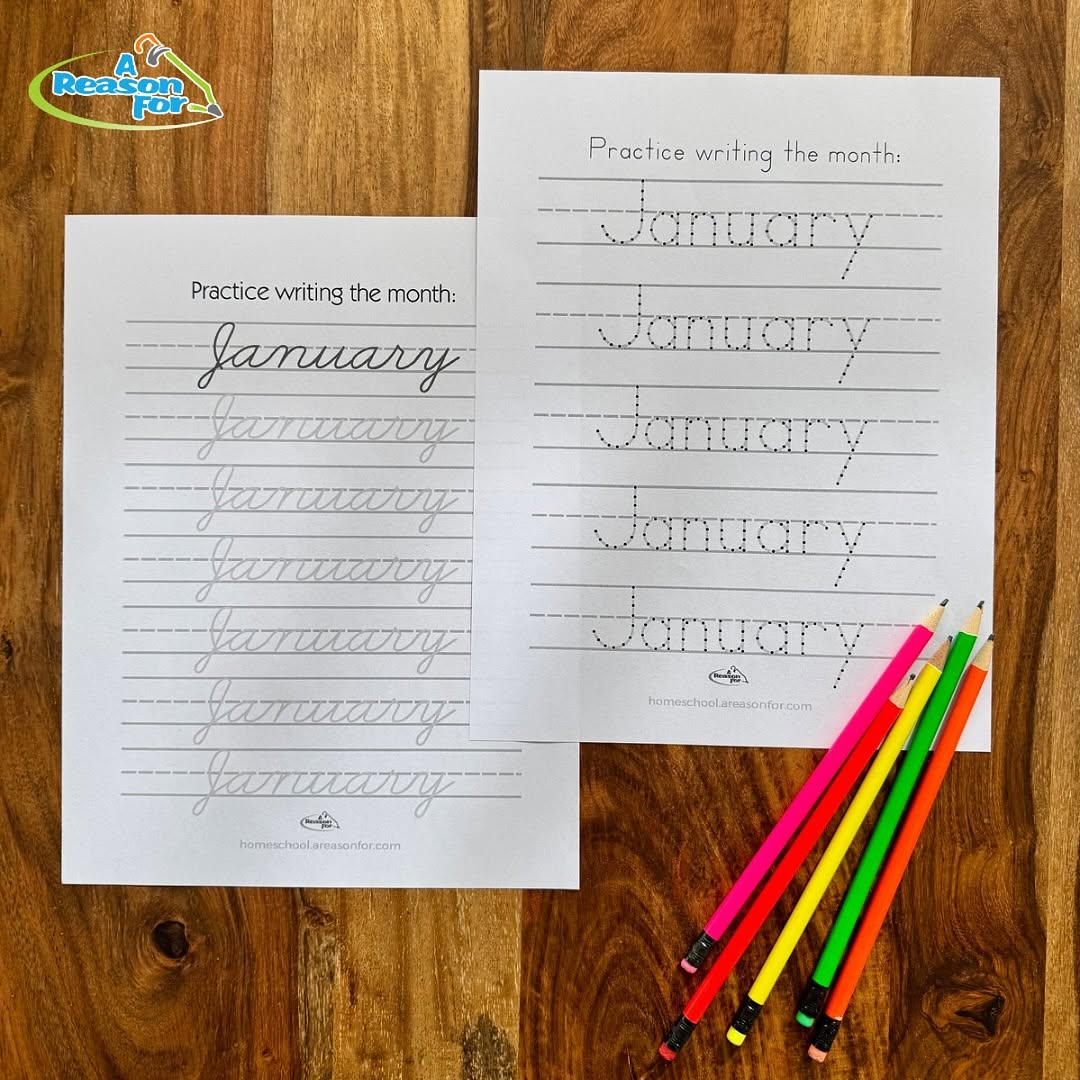 A
Reason
For
Practice writing the month:
January
January
January
January
January
January
January
A
Reason
For
homeschool.areasonfor.com
Practice writing the month:
January
January
January
January
January
A
Reason
For
homeschool.areasonfor.com